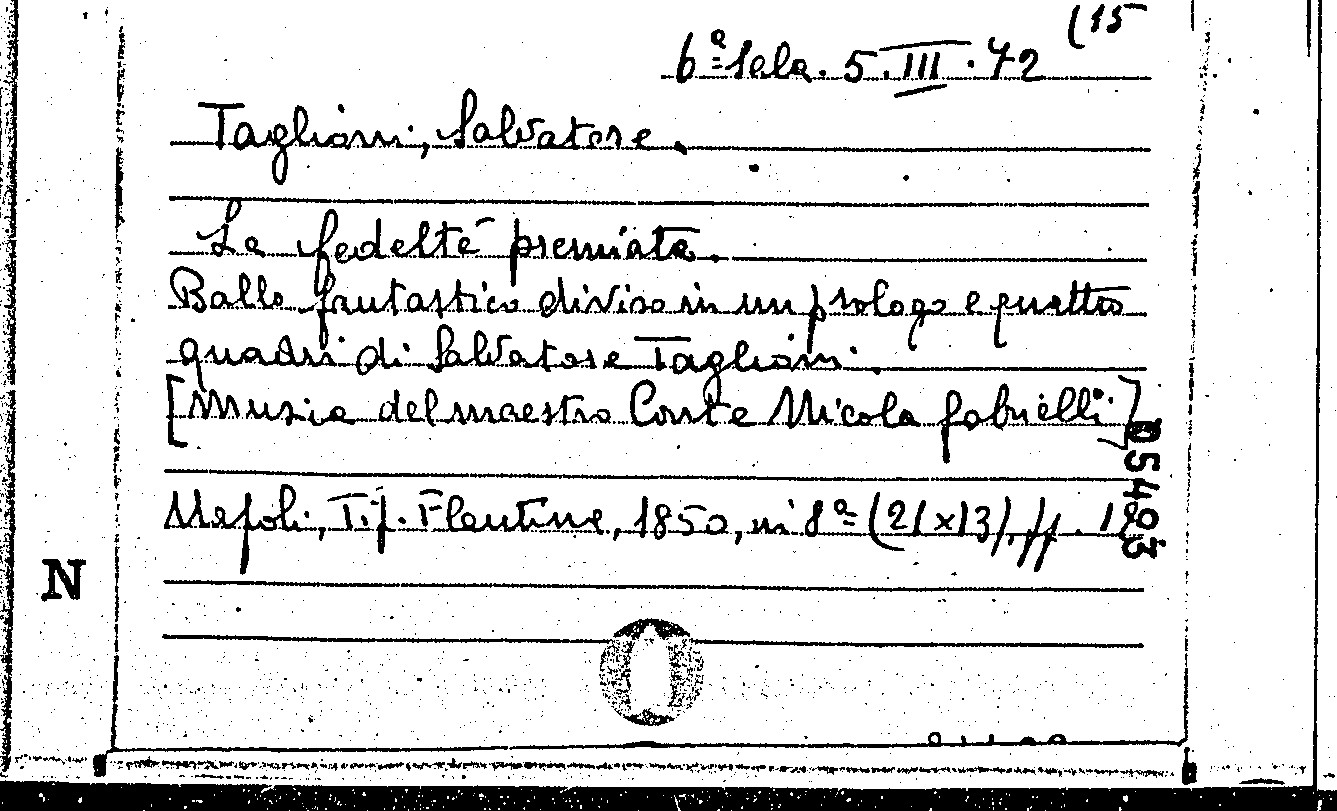 (15
6ª Sala. 5.III.72
Taglioni, Salvatore.
La fedeltà premiata.
Ballo fantastico diviso in un prologo e quattro
quadri di Salvatore Taglioni.
[Musica del maestro Conte Nicola Gabrielli]
Napoli, Tip. Flautina, 1850, in 8º (21x13), pp.
05403
N